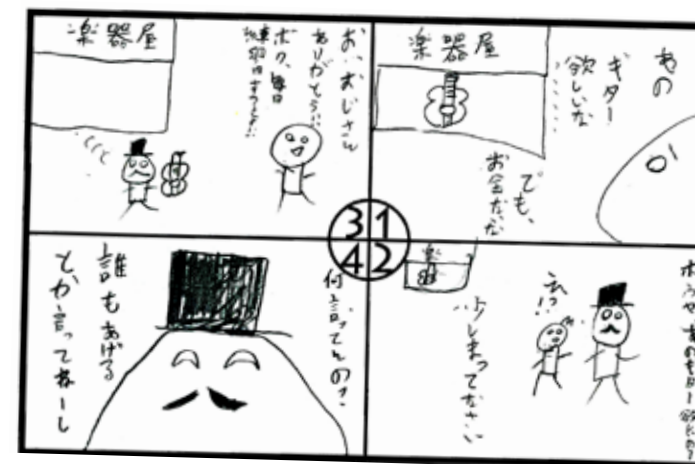 楽器屋
あの
ギター
欲しいな
でも、
お金ないな
1
坊や、あのギター欲しいか?
えっ!?
楽
少しまってなさい
2
楽器屋
お、おじさん
ありがとう!!
ボク、毎日
練習するよ!!
3
何言ってんの?
誰もあげる
とか言ってねーし
4